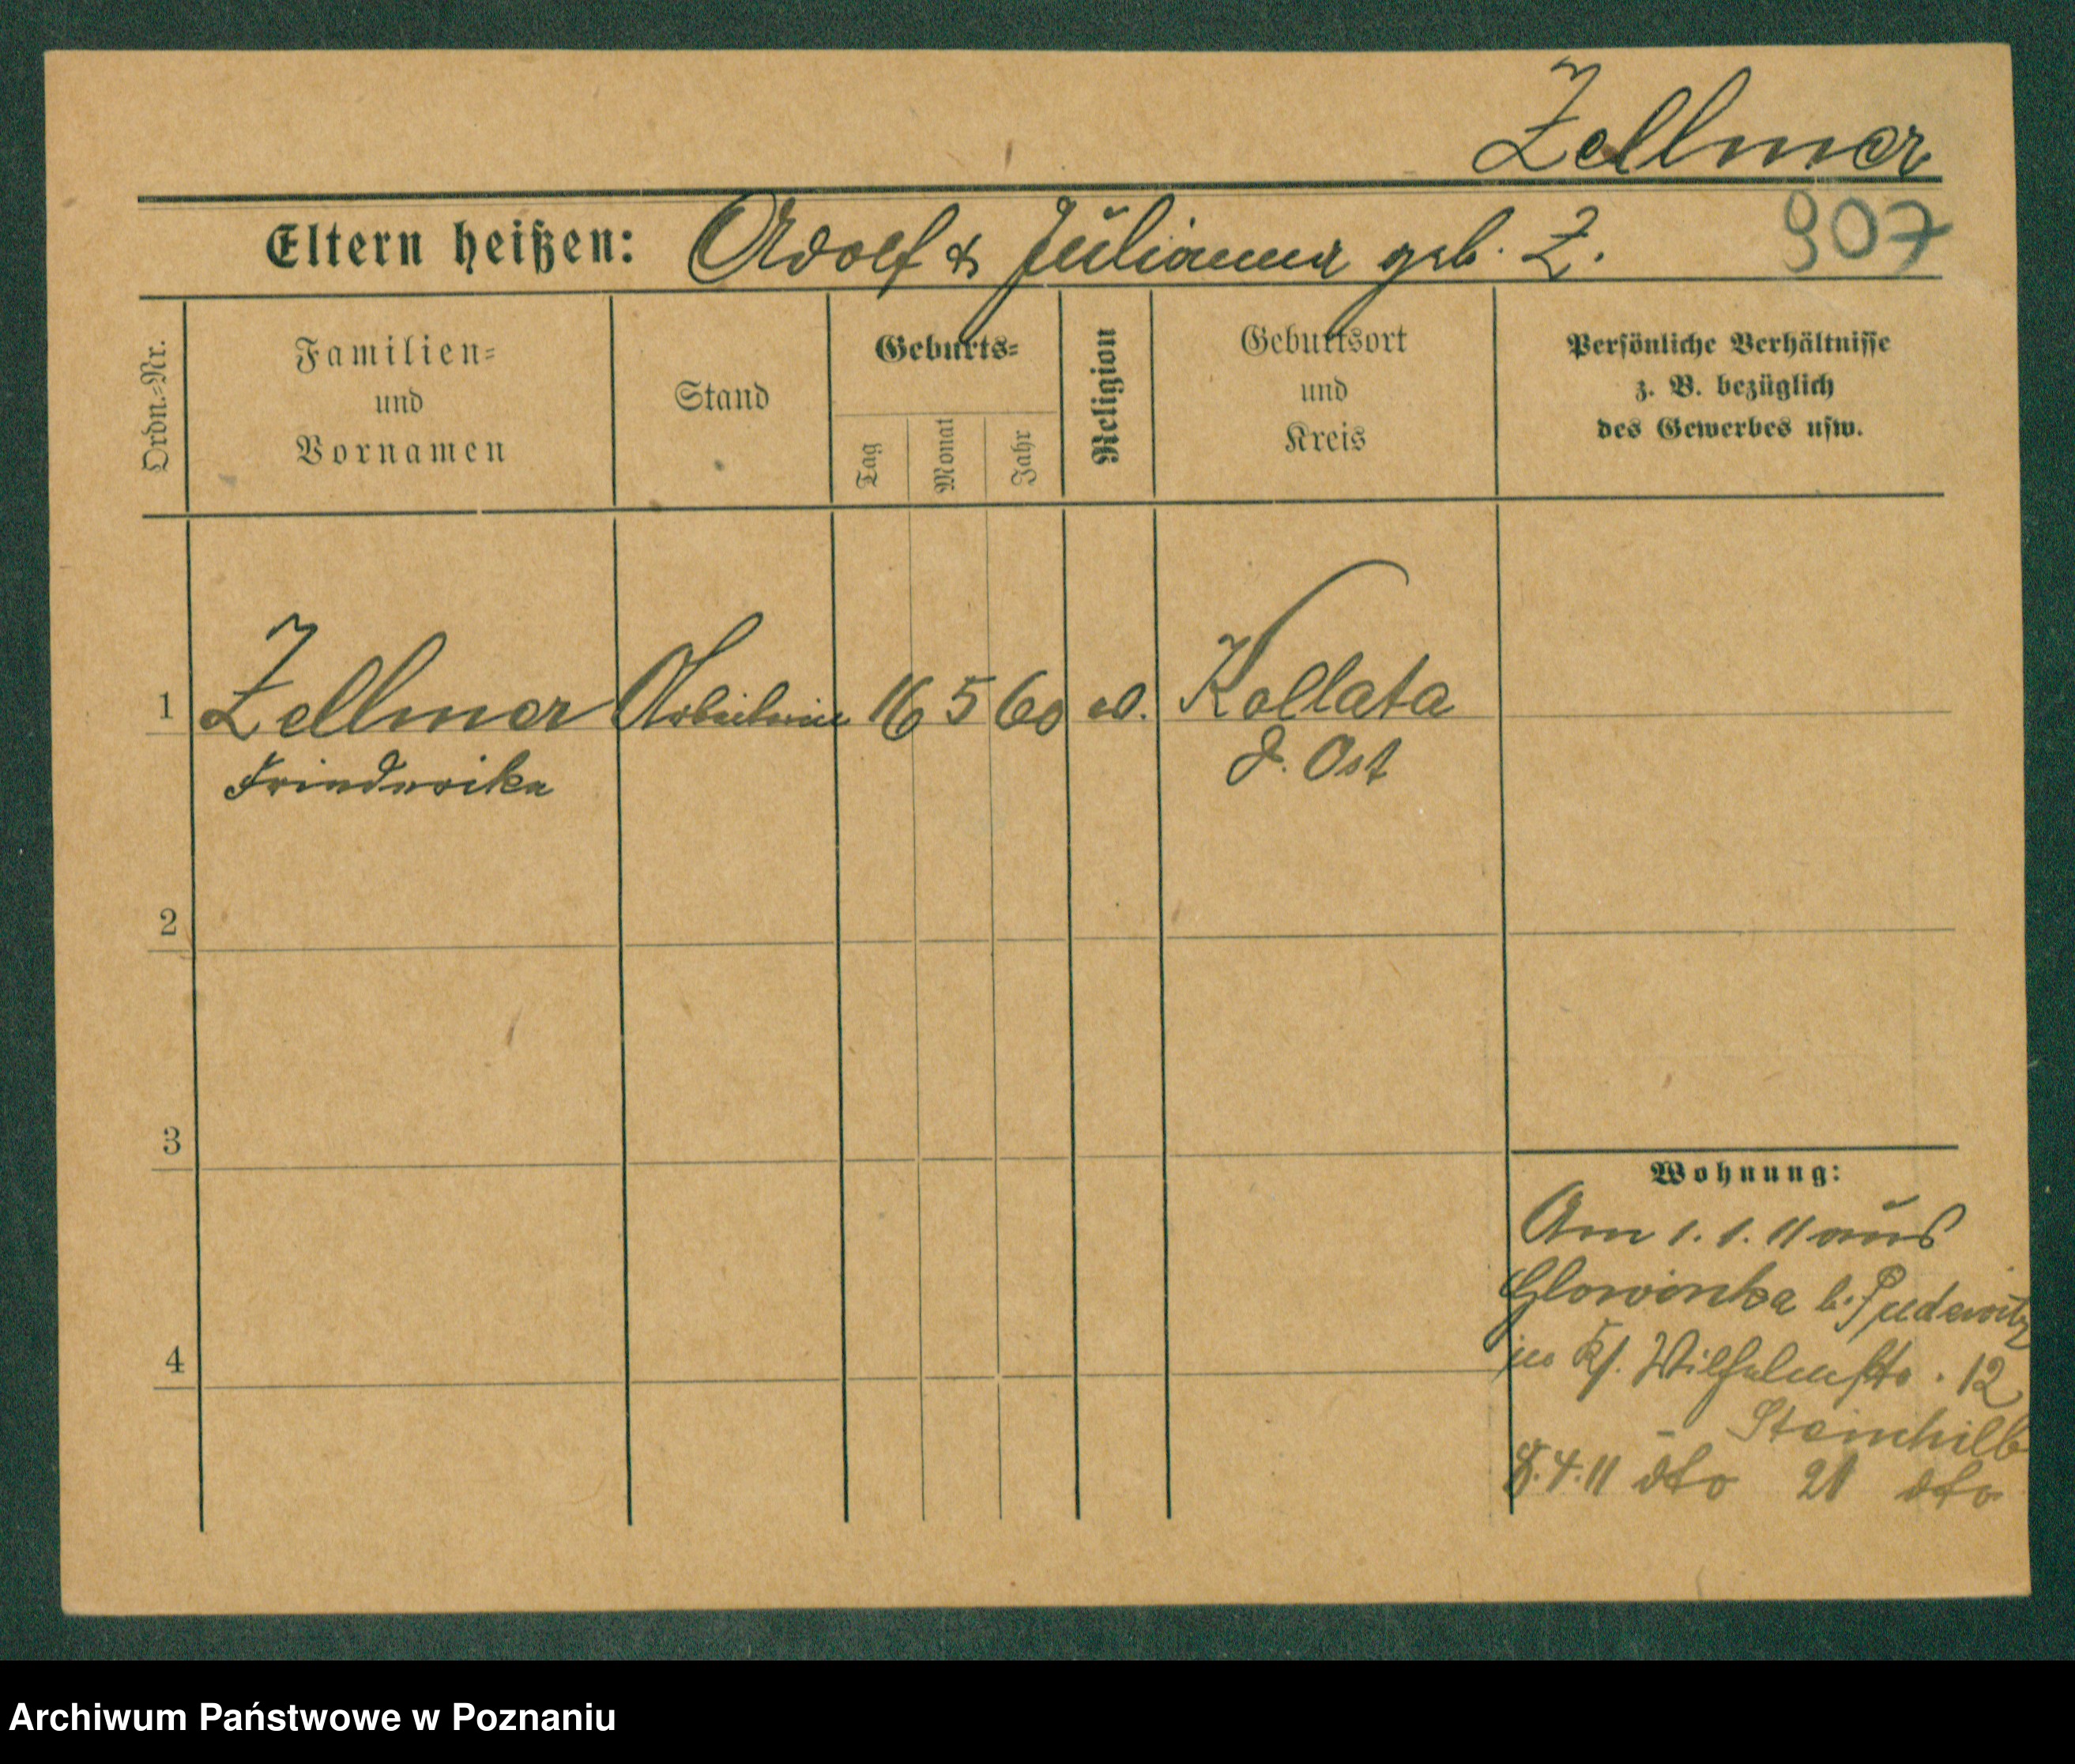 Zellmer
Eltern heißen: Adolf & Julianna geb. Z. 907
Ordn.-Nr.
Familien-
und
Vornamen
Stand
Geburts-
Tag
Monat
Jahr
Religion
Geburtsort
und
Kreis
Persönliche Verhältnisse
z. B. bezüglich
des Gewerbes usw.
1 Zellmer Arbeiterin 16 5 60 ev. Kollata
Friederika P. Ost
2
3
4
Wohnung:
Am 1. 1. 11 aus
Glowinka b. Pudewitz
Wilhelmstr. 12
Steinhilb
8.4.11 dto 21 dto
Archiwum Państwowe w Poznaniu